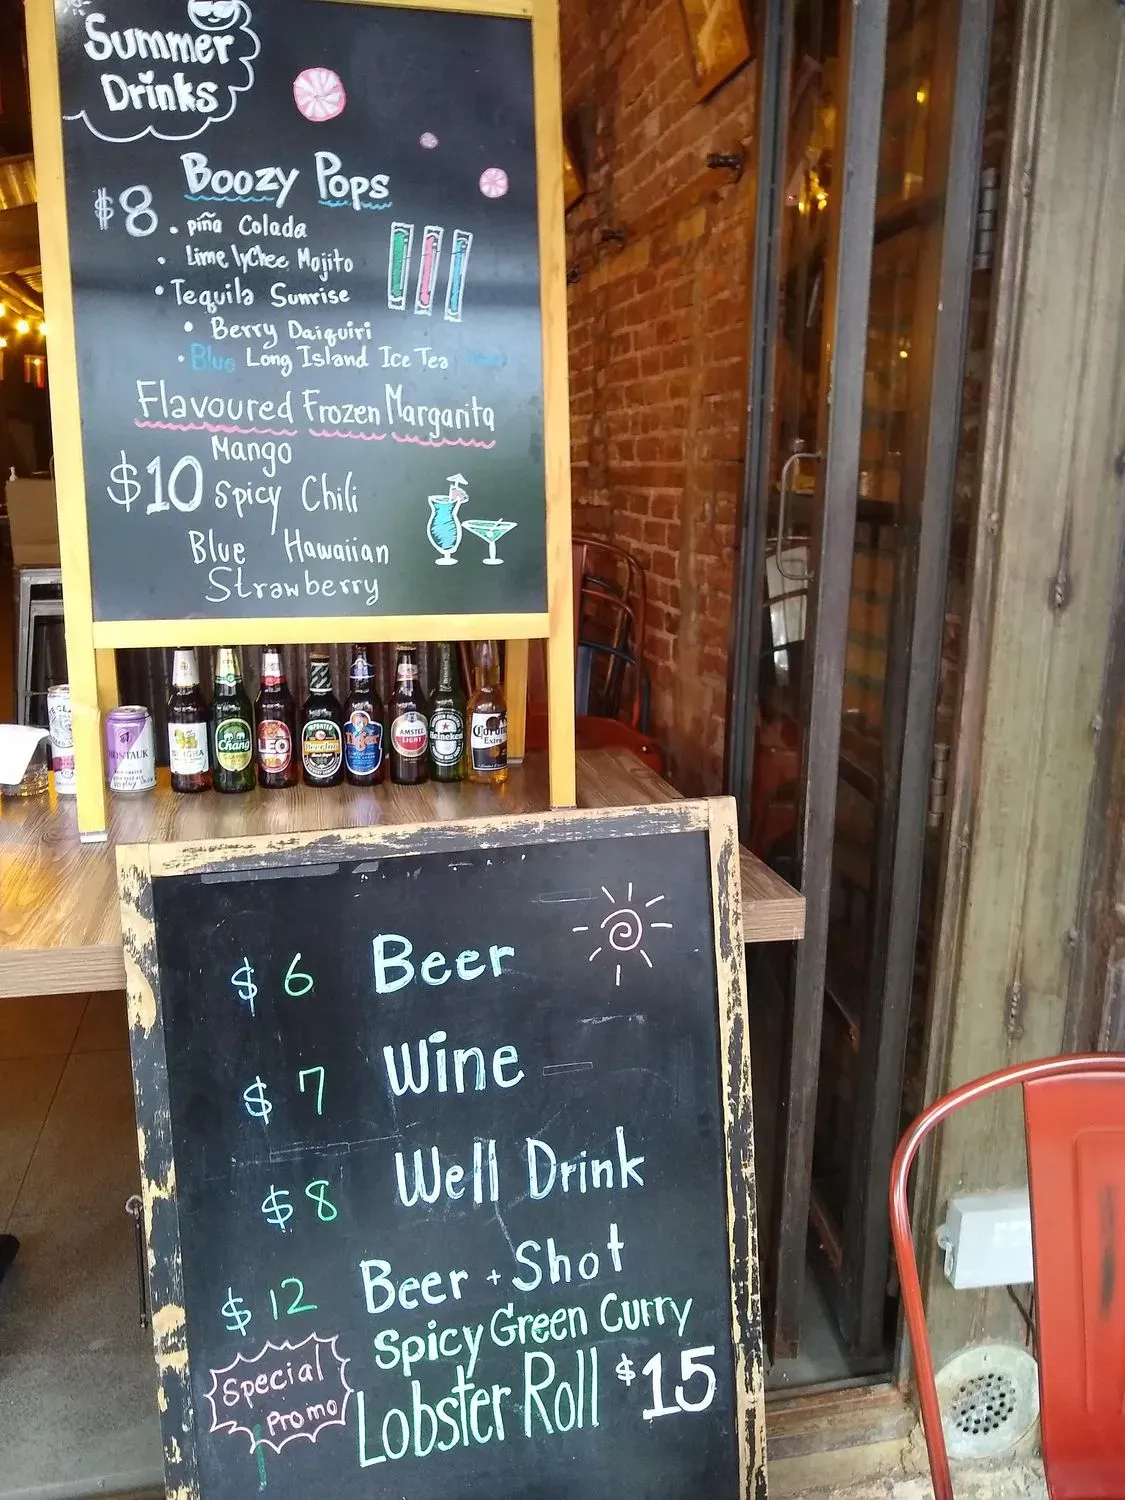 Summer
Drinks
Boozy Pops
$8
. piña Colada
. Lime lychee Mojito
• Tequila Sunrise
• Berry Daiquiri
• Blue Long Island Ice Tea
Flavoured Frozen Margarita
Mango
$10 Spicy Chili
Blue Hawaiian
Strawberry
MONTAUK
SINGHA
Chang
LEO
IMPORTED
Beerlao
Tiger
AMSTEL
LIGHT
Heineken
Corona
Extra
$ 6 Beer
$ 7 Wine
$ 8 Well Drink
$ 12 Beer + Shot
Special
Promo
Spicy Green Curry
Lobster Roll $15